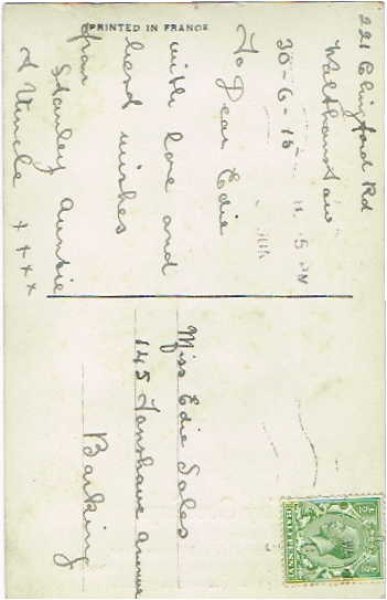 PRINTED IN FRANCE
221 Chingford Rd
Walthamstow
30-6-15
To Dear Edie
with love and
best wishes
from
Stanley Auntie
& Uncle ××××
Miss Edie Sales
145 Fanshawe Avenue
Barking
5 PM
HALFPENNY